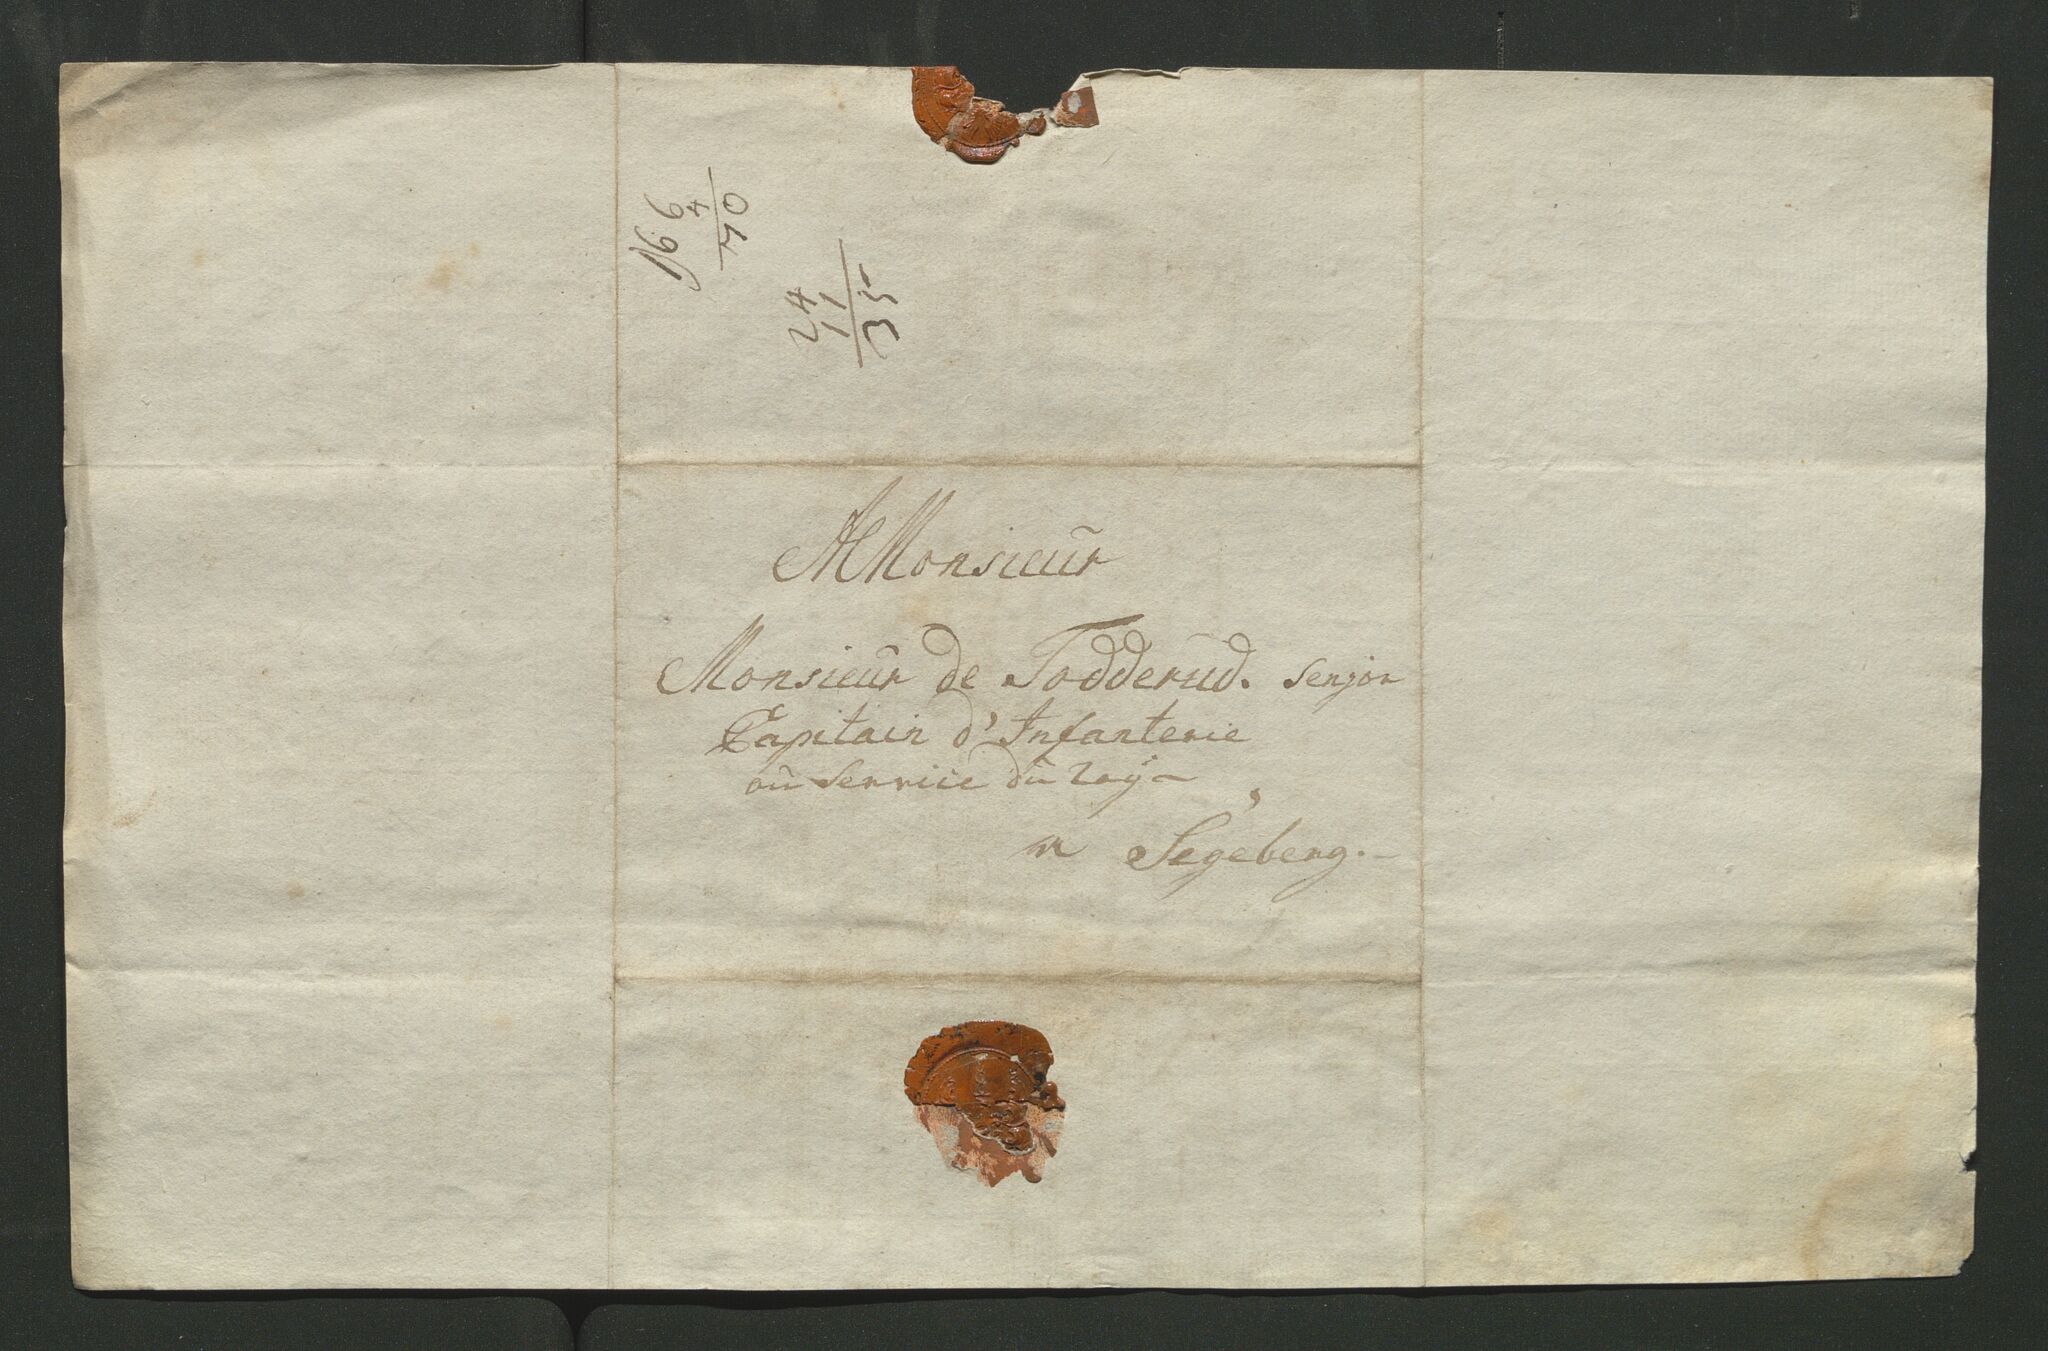 166
4
70
24
11
35
A Monsieur
Monsieur de Todderud. Senjor
Capitain d'Infanterie
au Service du Roy
a Segeberg.